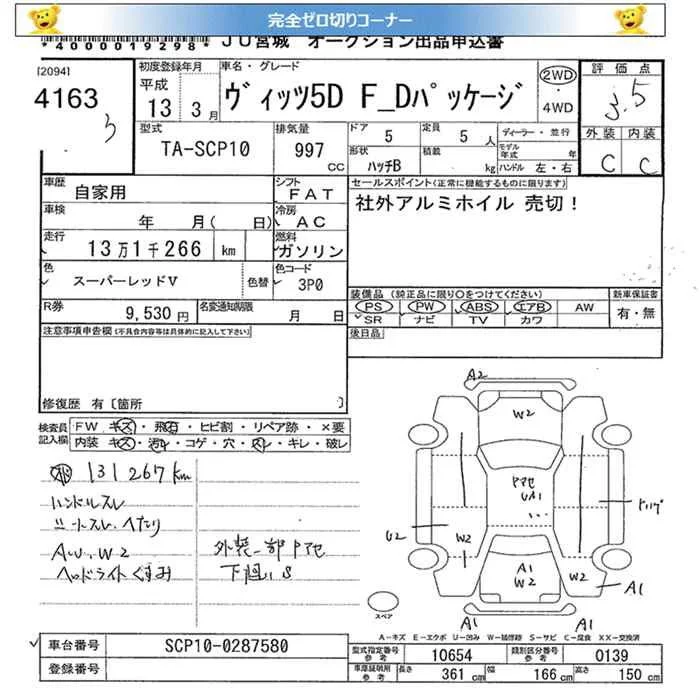 完全ゼロ切りコーナー
*40000019298* JU宮城 オークション出品申込書
(20941
4163
3
初度登録年月
平成 13 3月
車名・グレード
ヴィッツ5D F_Dパッケージ
2WD
・
4WD
評価点
3.5
外装 内装
C C
型式
TA-SCP10
排気量
997 CC
ドア 5
定員 5人
形状 ハッチB
積載 kg
ディーラー・並行
モデル年式 年
ハンドル 左・右
車歴 自家用
シフト FAT
車検 年 月( 日)
冷房 AC
走行 13万1千266 km
燃料 ガソリン
色 スーパーレッドV 色替
色コード 3P0
R券 9,530円
名変通知期限 月 日
セールスポイント(正常に機能するものに限ります)
社外アルミホイル 売切!
装備品 (純正品に限り○をつけてください)
PS PW ABS エアB AW
SR ナビ TV カワ
新車保証書
有・無
後日品
注意事項申告欄(不具合内容等は具体的に記入して下さい)
修復歴 有〔箇所 〕
検査員記入欄
FW キズ・飛石・ヒビ割・リペア跡・×要
内装 キズ・汚レ・コゲ・穴・スレ・キレ・破レ
131267km
ハンドルスレ
シートスレ・ヘたり
A.U.W2
ヘッドライトくすみ
外装一部アセ
下廻りS
A2
W2
アセ
UA1
U2
W2
A1
W2
W2
A1
A1
A1
スペア
A-キズ E-エクボ U-凹み W-補修跡 S-サビ C-腐食 XX-交換済
車台番号 SCP10-0287580
登録番号
型式指定番号 参考 10654
類別区分番号 参考 0139
車庫証明用 参考
長さ 361 cm
幅 166 cm
高さ 150 cm